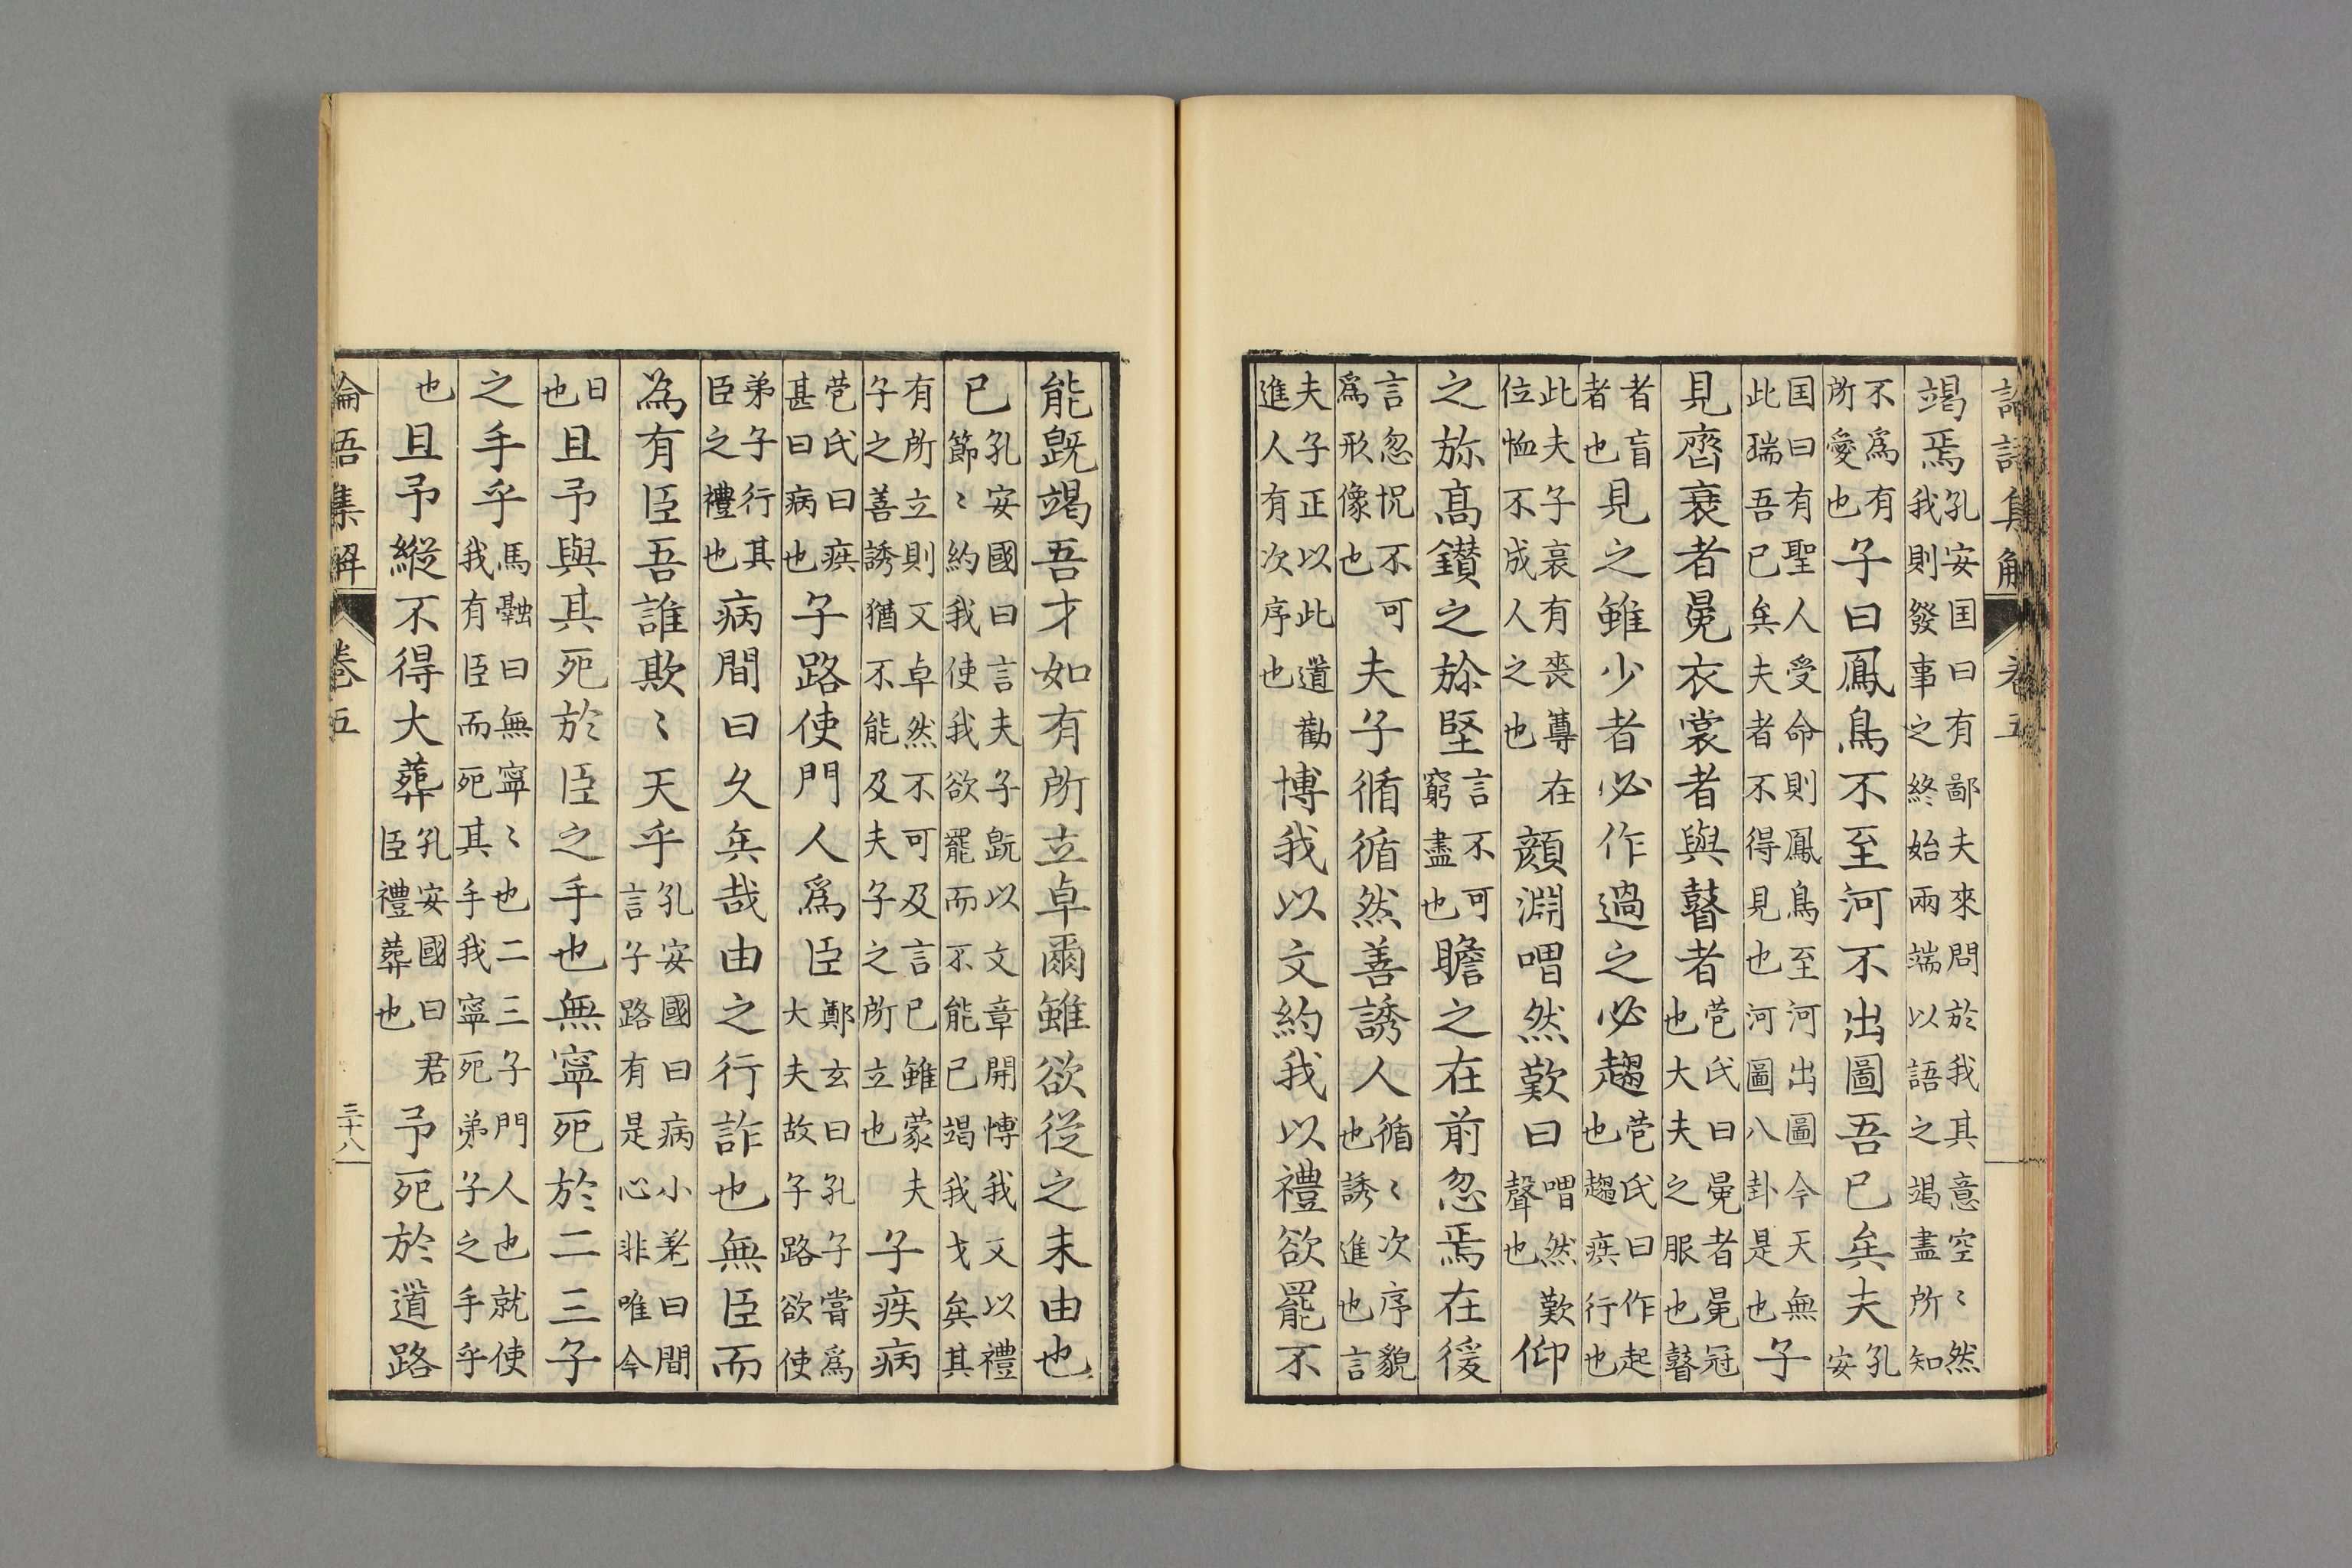 論語集解 卷五
竭焉孔安囯曰有鄙夫來問於我其意空〻然我則發事之終始兩端以語之竭盡所知
不爲有所愛也子曰鳳鳥不至河不出圖吾已矣夫孔安
囯曰有聖人受命則鳳鳥至河出圖今天無此瑞吾已矣夫者不得見也河圖八卦是也子
見齊衰者冕衣裳者與瞽者苞氏曰冕者冕冠也大夫之服也瞽
者盲者也見之雖少者必作過之必趨苞氏曰作起也趨疾行也
此夫子哀有喪尊在位恤不成人之也顔淵喟然歎曰喟然歎聲也仰
之弥高鑚之弥堅言不可窮盡也瞻之在前忽焉在後
言忽怳不可爲形像也夫子循循然善誘人循〻次序貌也誘進也言
夫子正以此道勸進人有次序也博我以文約我以禮欲罷不
能既竭吾才如有所立卓爾雖欲從之末由也
已孔安國曰言夫子既以文章開博我又以禮節〻約我使我欲罷而不能已竭我才矣其
有所立則又卓然不可及言已雖蒙夫子之善誘猶不能及夫子之所立也子疾病
苞氏曰疾甚曰病也子路使門人爲臣鄭玄曰孔子嘗爲大夫故子路欲使
弟子行其臣之禮也病間曰久矣哉由之行詐也無臣而
為有臣吾誰欺〻天乎孔安國曰病小差曰間言子路有是心非唯今
日也且予與其死於臣之手也無寧死於二三子
之手乎馬融曰無寧〻也二三子門人也就使我有臣而死其手我寧死弟子之手乎
也且予縱不得大葬孔安國曰君臣禮葬也予死於道路
論語集解 卷五 三十八